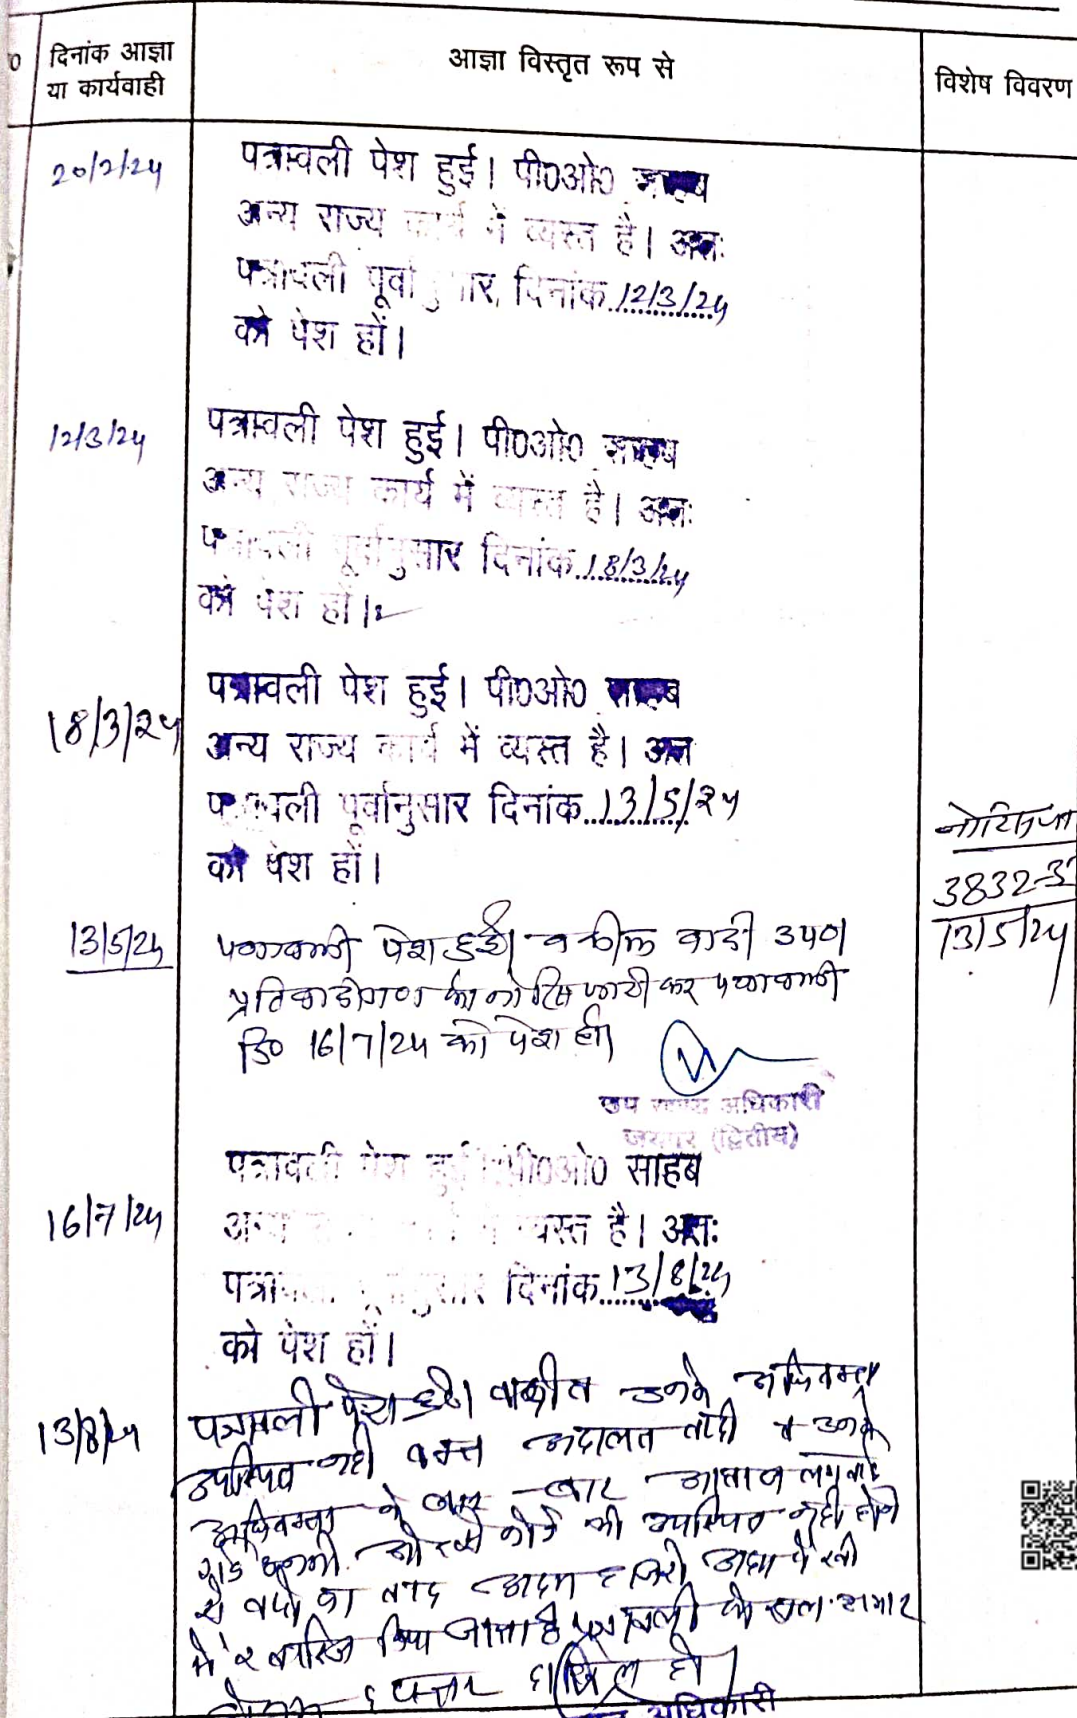 दिनांक आज्ञा
या कार्यवाही
आज्ञा विस्तृत रूप से
विशेष विवरण
20/2/24
पत्रावली पेश हुई। पी0ओ0 साहब
अन्य राज्य कार्य में व्यस्त है। अतः
पत्रावली पूर्वानुसार दिनांक 12/3/24
को पेश हों।
12/3/24
पत्रावली पेश हुई। पी0ओ0 साहब
अन्य राज्य कार्य में व्यस्त है। अतः
पत्रावली पूर्वानुसार दिनांक 18/3/24
को पेश हों।
18/3/24
पत्रावली पेश हुई। पी0ओ0 साहब
अन्य राज्य कार्य में व्यस्त है। अतः
पत्रावली पूर्वानुसार दिनांक 13/5/24
को पेश हों।
13/5/24
पत्रावली पेश हुई। वकील वादी उप0।
प्रतिवादीगण को नोटिस जारी कर पत्रावली
दि0 16/7/24 को पेश हो।
3832-3
13/5/24
उप खण्ड अधिकारी
जयपुर (द्वितीय)
16/7/24
पत्रावली पेश हुई। पी0ओ0 साहब
अन्य व्यस्त है। अतः
पत्रावली पूर्वानुसार दिनांक 13/8/24
को पेश हों।
13/8/24
पत्रावली पेश हुई। उनके अधिवक्ता
उपस्थित नही वक्त अदालत वादी व उनके
अधिवक्ता को बार बार आवाज लगवाई
गई उनकी ओर से कोई भी उपस्थित नही होने
से वादी का वाद अदम हाजिरी अदम पैरवी
मे खारिज किया जाता है पत्रावली
दाखिल हो।
अधिकारी